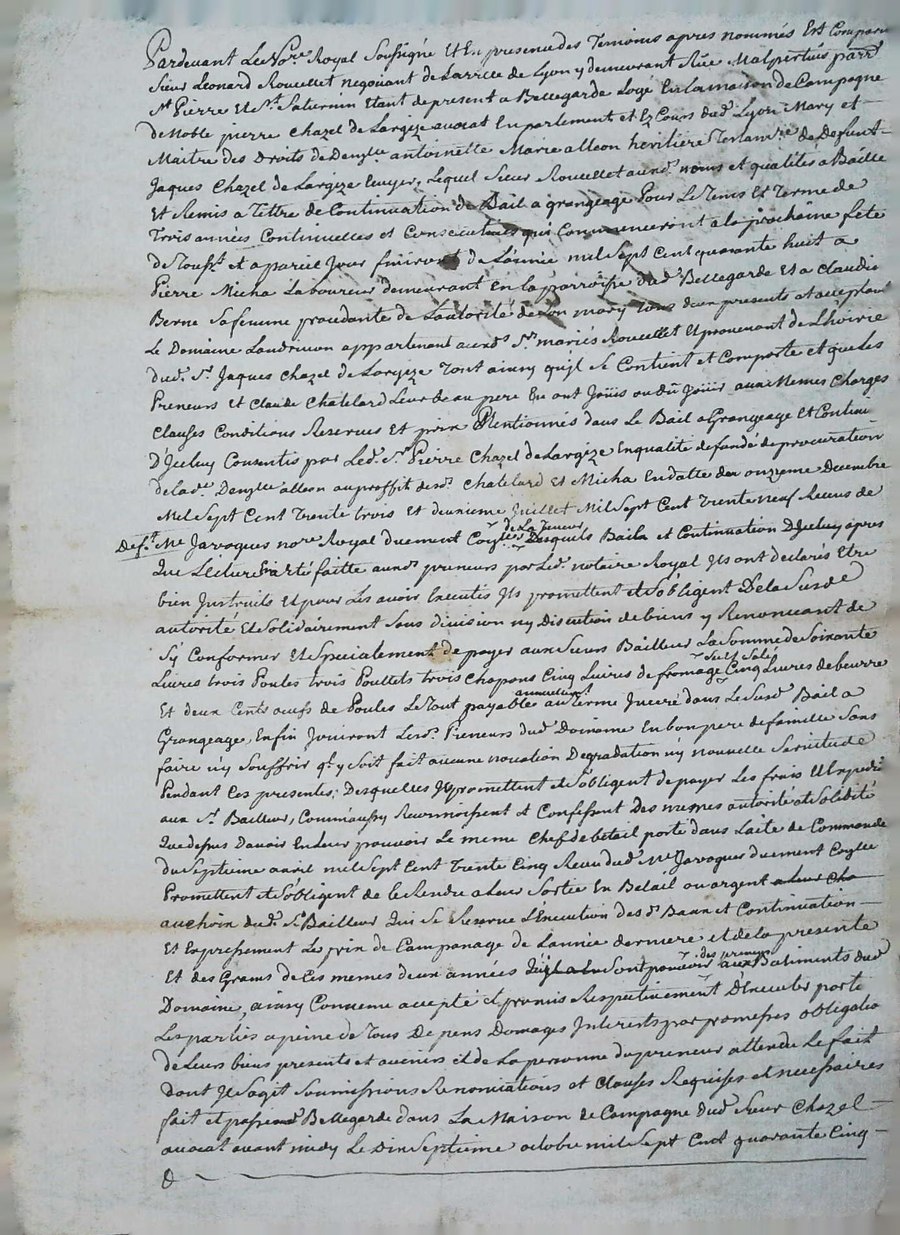 Pardevant Le No.re Royal Soussigné Et En presence des Temoins apres nommés Est Comparu
Sieur Leonard Rouellet negotiant de La ville de Lyon y demeurant Rüe Malpertuis parr.
S.t Pierre Et S.t Saturnin Etant de present a Bellegarde Logé En La maison de Campagne
de Noble pierre Chazel de Largeze avocat En parlement et Ez Cours de Lyon Mary et
Maitre des Droits de Den.lle antoinette Marie alleon heritiere Testam.re de Defunt
Jaques Chazel de Largeze Ecuyer, Lequel Sieur Rouellet auxd. noms et qualités a Baillé
Et Remis a Tittre de Continuation de Bail a grangeage Pour Le Tems Et Terme de
Trois années Continuelles et Consecutives qui Commenceront a la prochaine fete
de Touss.t et a pareil Jour finiront de L'année mil Sept Cent quarante huit a
Pierre Micha Laboureur demeurant En la parroisse dud. Bellegarde Et a Claudis
Berne Sa femme procedante de L'autorité de Son mary Tous deux presents et acceptans
Le Domaine appartenant auxd. S.rs mariés Rouellet Et provenant de L'hoirie
dud. S.r Jaques Chazel de Largeze Tout ainsy qu'jl Se Contient et Comporte et que Les
Preneurs Et Claude Chatelard Leur beau pere En ont Joüis ou dû Joüir aux Memes Charges
Clauses Conditions Reserves Et prix Mentionnés dans Le Bail a Grangeage Et Continu
D'Jceluy Consentis par Led. S.r Pierre Chazel de Largeze En qualité de fondé de procuration
de lad. Den.lle alleon au proffit desd. Chatelard Et Micha En datte des onzieme Decembre
Mil Sept Cent Trente Trois Et deuxieme Juillet Mil Sept Cent Trente neuf Receus de
Def.t M.e Javogues no.re Royal duement Co.lés desquels Baila et Continuation D'Jceluy apres
de La Teneur
Que Lecture a Eté faitte auxd. preneurs par Led. notaire Royal Jls ont declarés Etre
bien Jnstruits Et pour Les avoir Executés Jls promettent et S'obligent De La Susd.e
autorité Et Solidairement Sans division ny Discution de biens y Renonceant de
S'y Conformer Et Specialement de payer aux Sieurs Bailleur La Somme de Soixante
Livres trois Poules trois Poullets trois Chapons Cinq Livres de fromage Cinq Livres de beurre
Et deux Cents oeufs de Poules Le Tout payable annuellem.t au Terme Jnseré dans Le Susd. Bail a
Grangeage, Enfin Jouiront Lesd. Preneurs dud. Domaine En bon pere de famille Sans
faire n'y Souffrir q.l y Soit fait aucune novation Degradation ny nouvelle Servitude
Pendant Ces presentes, Desquelles Jls promettent et S'obligent de payer Les frais Et Expedi.
aux S.r Bailleur, Comm'aussy Reconnoissent et Confessent Des mesmes autorité et Solidité
Que dessus D'avoir En Leur pouvoir Le meme Chef de bétail porté dans L'acte de Commande
du Septieme avril mil Sept Cent Trente Cinq Receu dud. M.e Javogues duement Co.lé
Promettent et S'obligent de le Rendre a Leur Sortie En Betail ou argent a Leur Cho
au choix dud. S.r Bailleur Qui Se Reserve L'Execution desd. Baux et Continuation
Et Expressement Le prix de Campanage de L'année derniere et de La presente
Et des Grains de Ces memes deux années aux Batiments dud.
Domaine, ainsy Convenu accepté et promis Respectivement D'Executer par Les
Les parties a peine de Tous De pens Domages Jnterests par promesses obligatio
de Leurs biens presents et avenirs et de La personne du preneur attendu Le fait
Dont Jl S'agit Soumissions Renonciations et Clauses Requises et necessaires
fait et passé aud. Bellegarde dans La Maison de Campagne dud. Sieur Chazel
avocat avant midy Le Dix Septieme octobre mil Sept Cent quarante Cinq